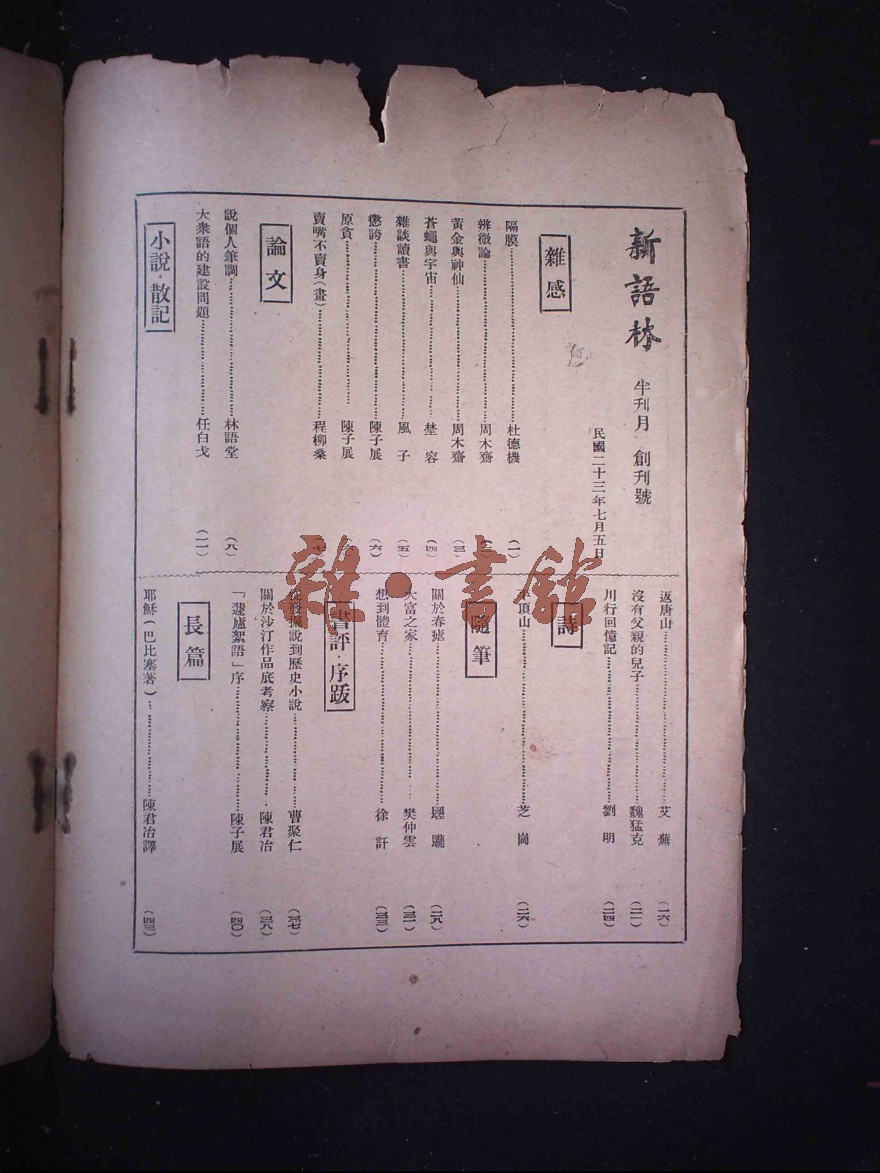 新語林
半刊月 創刊號
民國二十三年七月五日
雜感
隔膜 杜德機 (一)
辨微論 周木齋
黃金與神仙 周木齋 (三)
蒼蠅與宇宙 埜容 (四)
雜談讀書 風子 (五)
懲誇 陳子展 (六)
原貪 陳子展
賣嘴不賣身(畫) 程柳燊
論文
說個人筆調 林語堂 (八)
大衆語的建設問題 任白戈 (一一)
小說·散記
返唐山 艾蕪 (一六)
沒有父親的兒子 魏猛克 (二一)
川行回憶記 劉明 (二四)
詩
頂山 芝崗 (二六)
隨筆
關於春瘧 (二八)
大富之家 樊仲雲 (三一)
想到體育 徐訏 (三三)
書評·序跋
說到歷史小說 曹聚仁 (三七)
關於沙汀作品底考察 陳君冶 (三八)
「蘧廬絮語」序 陳子展 (四〇)
長篇
耶穌(巴比塞著) 陳君冶譯 (四三)
雜·書館